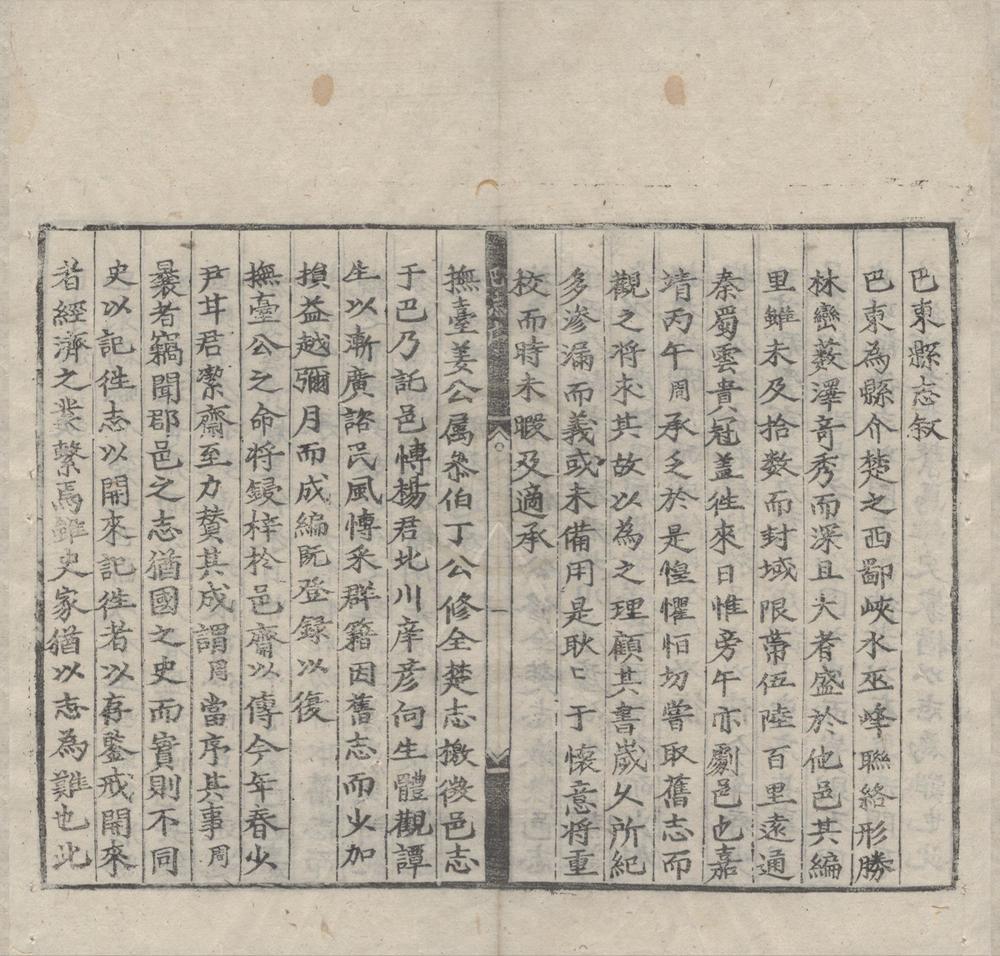 巴東縣志叙
巴東為縣介楚之西鄙峽水巫峰聯絡形勝
林巒藪澤奇秀而深且大者盛於他邑其編
里雖未及拾数而封域限帶伍陸百里遠通
秦蜀雲貴冠盖徃來日惟旁午亦劇邑也嘉
靖丙午周承乏於是惶懼怕切嘗取舊志而
觀之将求其故以為之理顧其書歲久所紀
多滲漏而義或未備用是耿〻于懷意将重
校而時未暇及適承
巴志
一
撫臺姜公属叅伯丁公修全楚志檄徴邑志
于巴乃託邑博楊君北川庠彦向生體觀譚
生以漸廣諮民風博采群籍因舊志而少加
損益越彌月而成編既登録以復
撫臺公之命将鋟梓於邑齋以傳今年春少
尹甘君潔齋至力賛其成謂周當序其事周
曩者竊聞郡邑之志猶國之史而實則不同
史以記徃志以開來記徃者以存鑒戒開來
者經濟之業繫焉雖史家猶以志為難也此